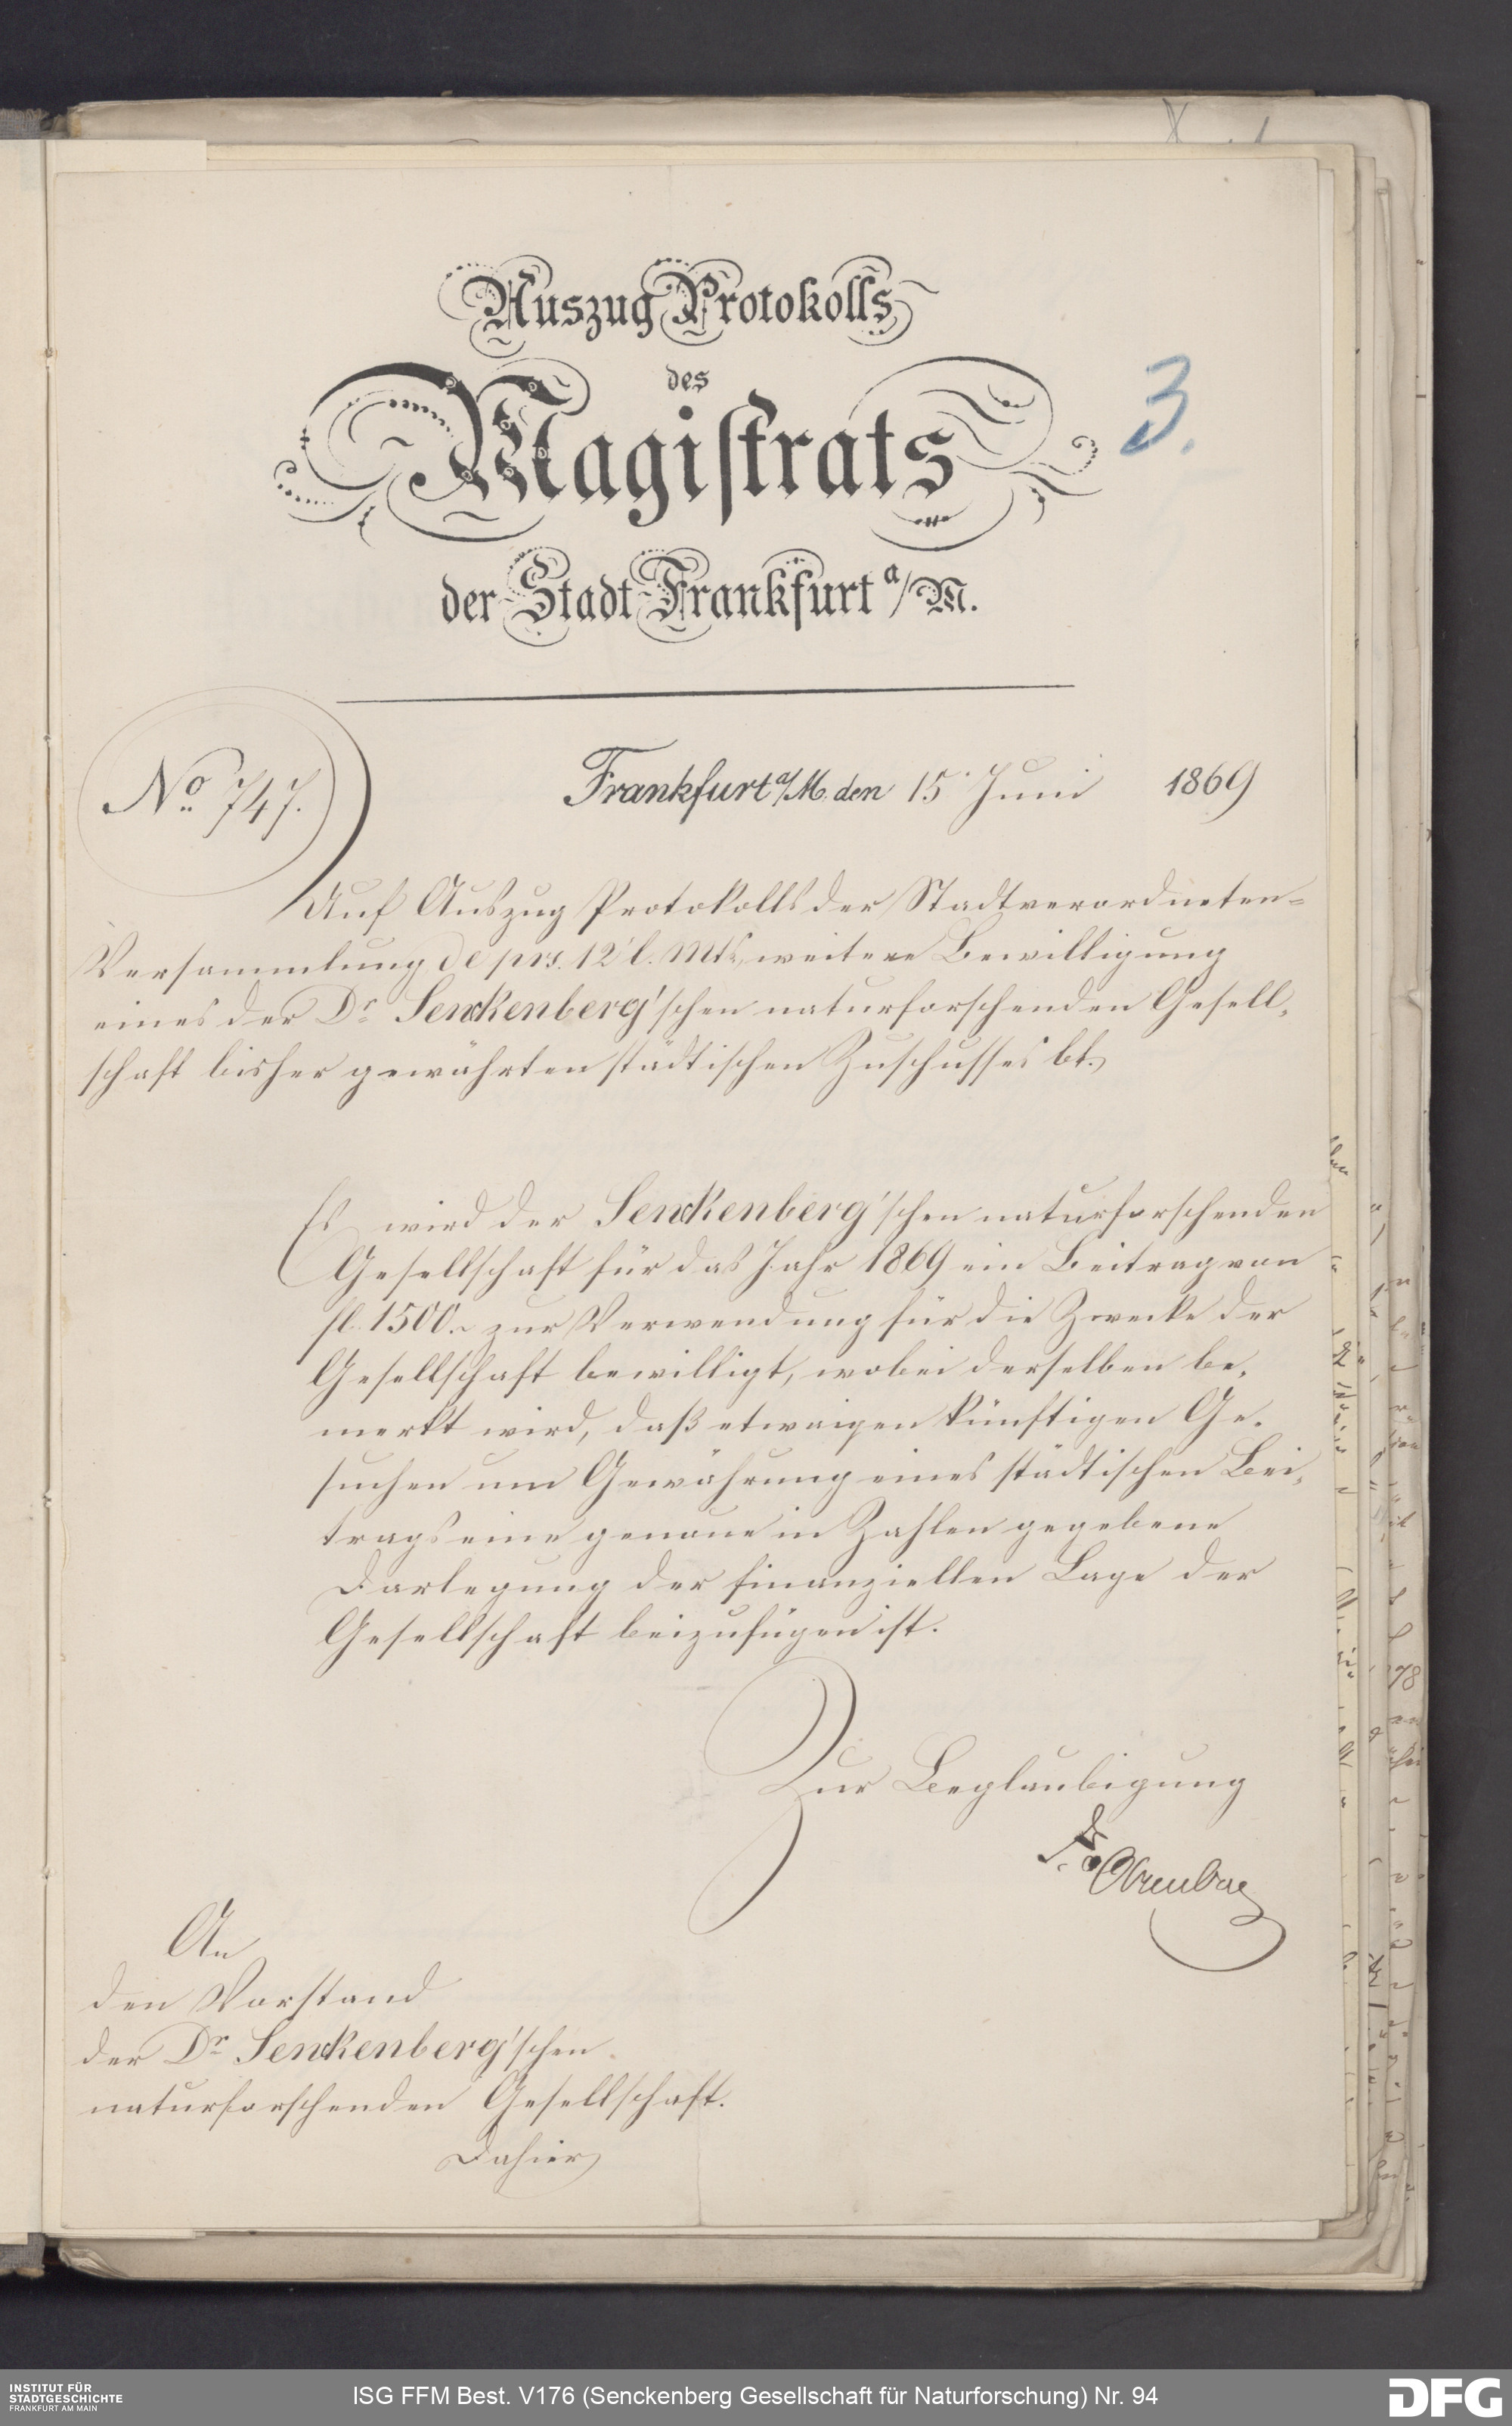 Auszug Protokolls
des
Magistrats
3.
der Stadt Frankfurt a/M.
No 747.
Frankfurt a/M. den 15 Juni 1869
Auf Auszug Protokolls der Stadtverordneten-
Versammlung de prs. 12 l. Mts, weitere Bewilligung
eines der Dr Senckenberg'schen naturforschenden Gesell-
schaft bisher gewährten städtischen Zuschusses bt.
Es wird der Senckenberg'schen naturforschenden
Gesellschaft für das Jahr 1869 ein Beitrag von
fl. 1500.- zur Verwendung für die Zwecke der
Gesellschaft bewilligt, wobei derselben be-
merkt wird, daß etwaigen künftigen Ge-
suchen um Gewährung eines städtischen Bei-
trags eine genaue in Zahlen gegebene
Darlegung der finanziellen Lage der
Gesellschaft beizufügen ist.
Zur Beglaubigung
An
den Vorstand
der Dr Senckenberg'schen
naturforschenden Gesellschaft.
Dahier
INSTITUT FÜR
STADTGESCHICHTE
FRANKFURT AM MAIN
ISG FFM Best. V176 (Senckenberg Gesellschaft für Naturforschung) Nr. 94
DFG